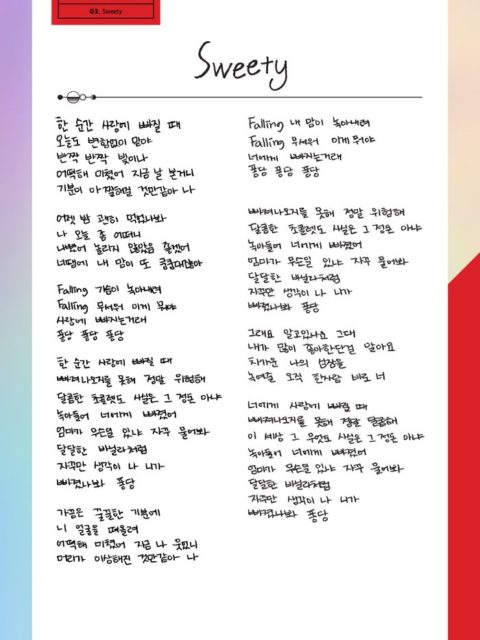 03. Sweety
Sweety
한 순간 사랑에 빠질 때
오늘도 변함없이 말야
반짝 반짝 빛이나
어떡해 미쳤어 지금 날 보거니
기분이 아찔해질 것만같아 나
어젯 밤 괜히 먹었나봐
나 오늘 좀 어떠니
내뱉어 놀리지 않았음 좋겠어
너땜에 내 맘이 또 쿵쿵대잖아
Falling 가슴이 녹아내려
Falling 무서워 이게 뭐야
사랑에 빠지는거래
퐁당 퐁당 퐁당
한 순간 사랑에 빠질 때
빠져나오지를 못해 정말 위험해
달콤한 초콜렛도 사실은 그 정돈 아냐
녹아들어 너에게 빠졌어
엄마가 무슨일 있냐 자꾸 물어봐
달달한 바닐라처럼
자꾸만 생각이 나 나가
빠졌나봐 퐁당
가끔은 꿀꿀한 기분에
니 얼굴을 떠올려
어떡해 미쳤어 지금 나 웃으니
머리가 이상해진 것만같아 나
Falling 내 맘이 녹아내려
Falling 무서워 이게 뭐야
너에게 빠지는거래
퐁당 퐁당 퐁당
빠져나오지를 못해 정말 위험해
달콤한 초콜렛도 사실은 그 정돈 아냐
녹아들어 너에게 빠졌어
엄마가 무슨일 있냐 자꾸 물어봐
달달한 바닐라처럼
자꾸만 생각이 나 나가
빠졌나봐 퐁당
그래요 알고있나요 그대
내가 많이 좋아한단걸 알아요
차가운 나의 심장을
녹여줄 오직 한사람 바로 너
너에게 사랑에 빠질 때
빠져나오지를 못해 정말 달콤해
이 세상 그 무엇도 사실은 그 정돈 아냐
녹아들어 너에게 빠졌어
엄마가 무슨일 있냐 자꾸 물어봐
달달한 바닐라처럼
자꾸만 생각이 나 나가
빠졌나봐 퐁당